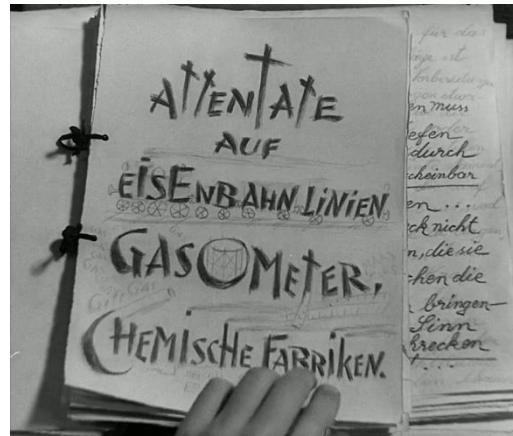 ATTENTATE
AUF
EISENBAHNLINIEN
GASOMETER,
CHEMISCHE FABRIKEN.
für das
ist
en muss
efen
durch
cheinbar
en...
ck nicht
n, die sie
chen die
bringen-
Sinn
hrecken